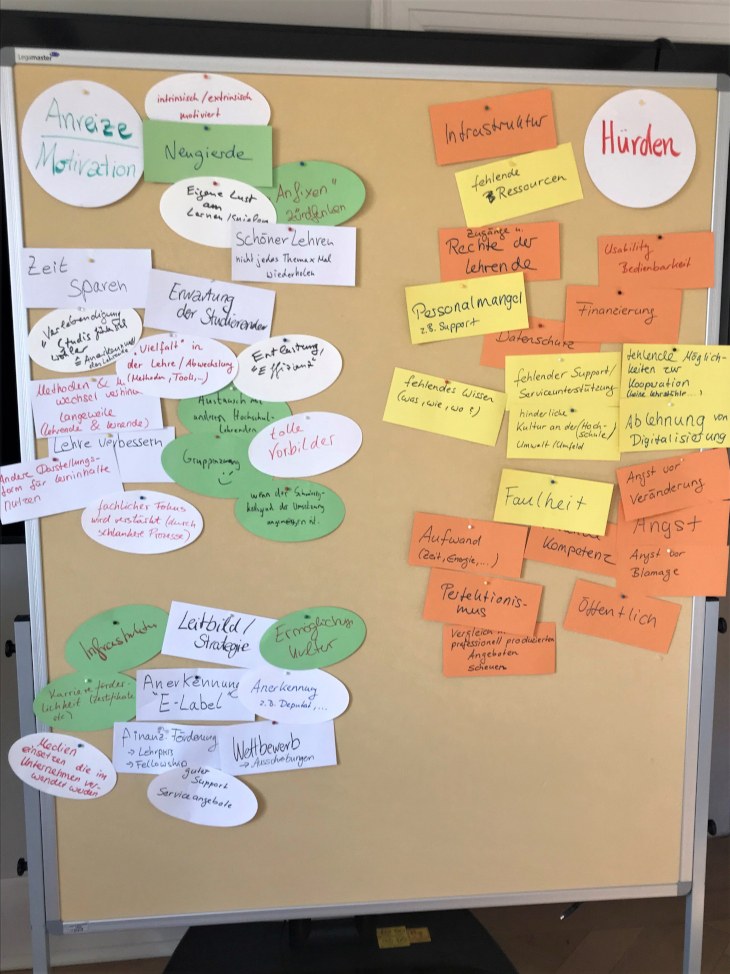 Legamaster
Anreize
Motivation
intrinsisch/extrinsisch
motiviert
Neugierde
Eigene Lust
am
Lernen
"Anfixen"
Schöner Lehren
nicht jedes Thema x Mal
wiederholen
Zeit
sparen
Erwartung
der Studierenden
Studis
"Vielfalt" in
der Lehre/Abwechslung
(Methoden, Tools,...)
Entlastung/
"Effizienz"
Methoden &
wechsel
Langeweile
(Lehrende & Lernende)
Austausch mit
anderen Hochschul-
Lehrenden
tolle
Vorbilder
Lehre verbessern
Gruppenzwang
Andere Darstellungs-
form für Lerninhalte
nutzen
fachlicher Fokus
wird verstärkt (durch
schlankere Prozesse)
wenn der
der Umsetzung
angemessen ist.
Infrastruktur
Leitbild/
Strategie
Ermöglichungs
kultur
Karriere förder-
lichkeit (Zertifikate
etc)
Anerkennung
"E-Label"
Anerkennung
z.B. Deputat,...
Medien
einsetzen die im
Unternehmen ver-
wendet werden
Finanz. Förderung
→ Lehrpreis
→ Fellowship
Wettbewerb
→ Ausschreibungen
guter
Support
Serviceangebote
Hürden
Infrastruktur
fehlende
Ressourcen
Zugänge u.
Rechte der
Lehrende
Usability
Bedienbarkeit
Personalmangel
z.B. Support
Finanzierung
Datenschutz
fehlendes Wissen
(was, wie, wo?)
fehlender Support/
Serviceunterstützung
fehlende Möglich-
keiten zur
Kooperation
hinderliche
Kultur an der (Hoch-
schule)
Umwelt/Umfeld
Ablehnung von
Digitalisierung
Faulheit
Angst vor
Veränderung
Aufwand
(Zeit, Energie,...)
Kompetenz
Angst
Angst vor
Blamage
Perfektionis-
mus
Öffentlich
Vergleich
professionell produzierten
Angeboten
scheuen